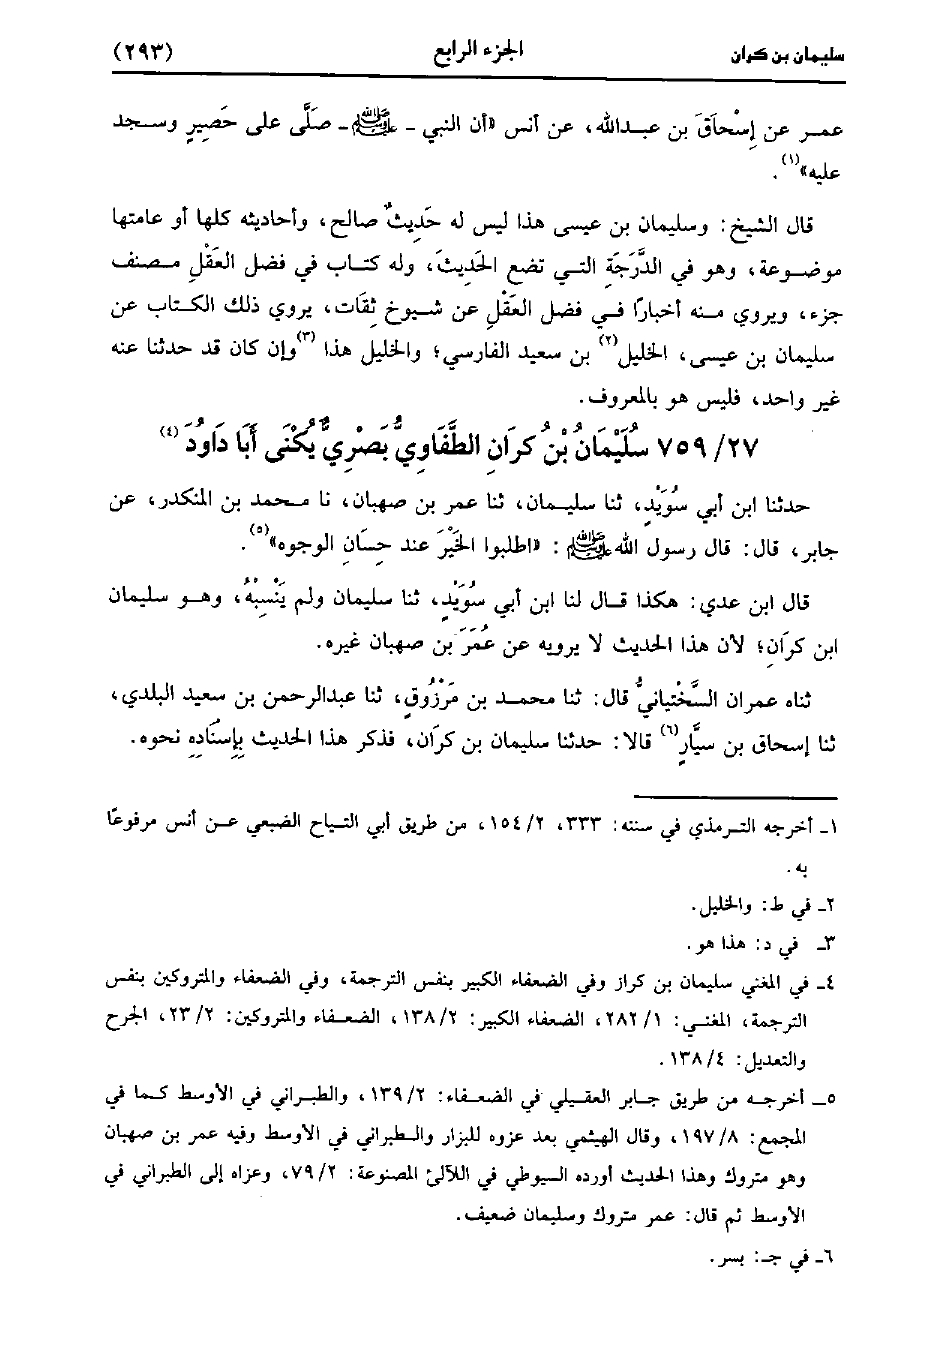 سليمان بن كران الجزء الرابع (٢٩٣)
عمـر عن إِسْحَاقَ بن عبدالله، عن أنس «أن النبي - ﷺ - صَلَّى على حَصِيرٍ وسـجد
عليه»(١).
قال الشيخ: وسليمان بن عيسى هذا ليس له حَدِيثٌ صالح، وأحاديثه كلها أو عامتها
موضـوعة، وهو في الدَّرَجَةِ التـي تضع الحَدِيثَ، وله كتـاب في فضل العَقْلِ مـصنف
جزء، ويروي مـنه أخبارًا فـي فضل العَقْلِ عن شـيوخ ثِقَات، يروي ذلك الكـتاب عن
سليمان بن عيسى، الخليل(٢) بن سعيد الفارسي؛ والخليل هذا (٣)وإن كان قد حدثنا عنه
غير واحد، فليس هو بالمعروف.
٧٥٩/٢٧ سُلَيْمَانُ بْنُ كرَانِ الطَّفَاوِيُّ بَصْرِيٌّ يُكْنَى أَبَا دَاوُدَ(٤)
حدثنا ابن أبي سُوَيْدٍ، ثنا سليـمان، ثنا عمر بن صهبان، نا مـحمد بن المنكدر، عن
جابر، قال: قال رسول الله ﷺ : «اطلبوا الخَيْرَ عند حِسَانِ الوجوه»(٥).
قال ابن عدي: هكذا قـال لنا ابن أبي سُوَيْدٍ، ثنا سليمان ولم يَنْسِبْهُ، وهـو سليمان
ابن كَرانِ؛ لأن هذا الحديث لا يرويه عن عُمَرَ بن صهبان غيره.
ثناه عمران السَّخْتِيانيُّ قال: ثنا محمـد بن مَرْزُوقٍ، ثنا عبدالرحمن بن سعيد البلدي،
ثنا إسحاق بن سيَّارٍ(٦) قالا: حدثنا سليمان بن كرَان، فذكر هذا الحديث بِإِسْنَادِهِ نحوه.
١ـ أخرجه التـرمذي في سننه: ٣٣٣، ١٥٤/٢، من طريق أبي التـياح الضبعي عـن أنس مرفوعًا
به.
٢ـ في ط: والخليل.
٣ـ في د: هذا هو.
٤ـ في المغني سليمان بن كراز وفي الضعفاء الكبير بنفس الترجمة، وفي الضعفاء والمتروكين بنفس
الترجمة، المغنـي: ٢٨٢/١، الضعفاء الكبير: ١٣٨/٢، الضعـفاء والمتروكين: ٢٣/٢، الجرح
والتعديل: ١٣٨/٤.
٥ـ أخرجـه من طريق جـابر العقيلي في الضعـفاء: ١٣٩/٢، والطبـراني في الأوسط كـما في
المجمع: ١٩٧/٨، وقال الهيثمي بعد عزوه للبزار والـطبراني في الأوسط وفيه عمر بن صهبان
وهو متروك وهذا الحديث أورده السيوطي في اللآلئ المصنوعة: ٧٩/٢، وعزاه إلى الطبراني في
الأوسط ثم قال: عمر متروك وسليمان ضعيف.
٦ـ في جـ: بسر.